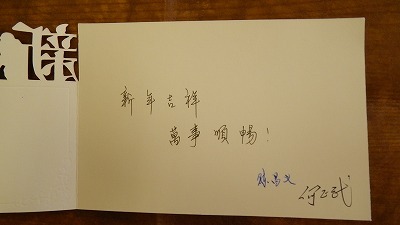 新
新年吉祥
萬事順暢!